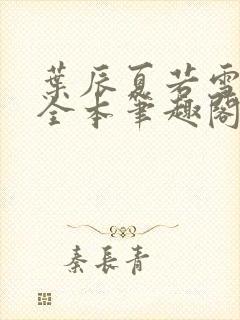 葉辰夏若雪
全本筆趣閣
秦長青